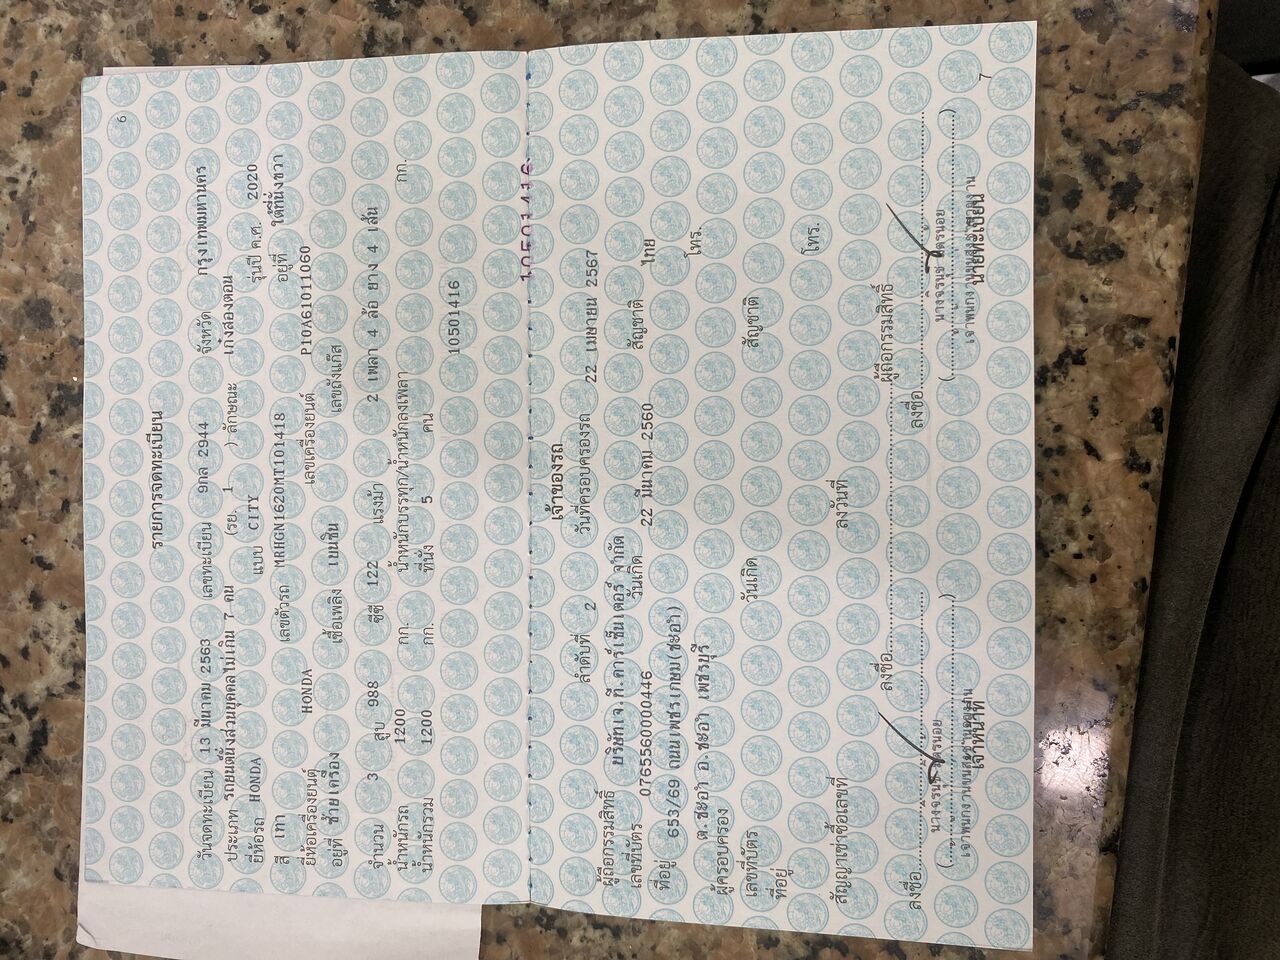 6
รายการจดทะเบียน
วันจดทะเบียน 13 มีนาคม 2563 เลขทะเบียน 9กล 2944 จังหวัด กรุงเทพมหานคร
ประเภท รถยนต์นั่งส่วนบุคคลไม่เกิน 7 คน (รย. 1 ) ลักษณะ เก๋งสองตอน
ยี่ห้อรถ HONDA แบบ CITY รุ่นปี ค.ศ. 2020
สี เทา เลขตัวรถ MRHGN1620MT101418 อยู่ที่ ใต้ที่นั่งขวา
ยี่ห้อเครื่องยนต์ HONDA เลขเครื่องยนต์ P10A61011060
อยู่ที่ ซ้ายเครื่อง เชื้อเพลิง เบนซิน เลขถังแก๊ส
จำนวน 3 สูบ 988 ซีซี 122 แรงม้า 2 เพลา 4 ล้อ ยาง 4 เส้น
น้ำหนักรถ 1200 กก. น้ำหนักบรรทุก/น้ำหนักลงเพลา กก.
น้ำหนักรวม 1200 กก. ที่นั่ง 5 คน
10501416
10501416
เจ้าของรถ
ลำดับที่ 2 วันที่ครอบครองรถ 22 เมษายน 2567
ผู้ถือกรรมสิทธิ์ บริษัทเจ.ที.คาร์เซ็นเตอร์ จำกัด
เลขที่บัตร 0765560000446 วันเกิด 22 มีนาคม 2560 สัญชาติ ไทย
ที่อยู่ 653/69 ถนนเพชรเกษม(ชะอำ) โทร.
ต.ชะอำ อ.ชะอำ เพชรบุรี
ผู้ครอบครอง
เลขที่บัตร วันเกิด สัญชาติ
ที่อยู่ โทร.
สัญญาเช่าซื้อเลขที่ ลงวันที่
ลงชื่อ ผู้ถือกรรมสิทธิ์
ลงชื่อ ลงชื่อ
เจ้าหน้าที่ นายทะเบียน
7